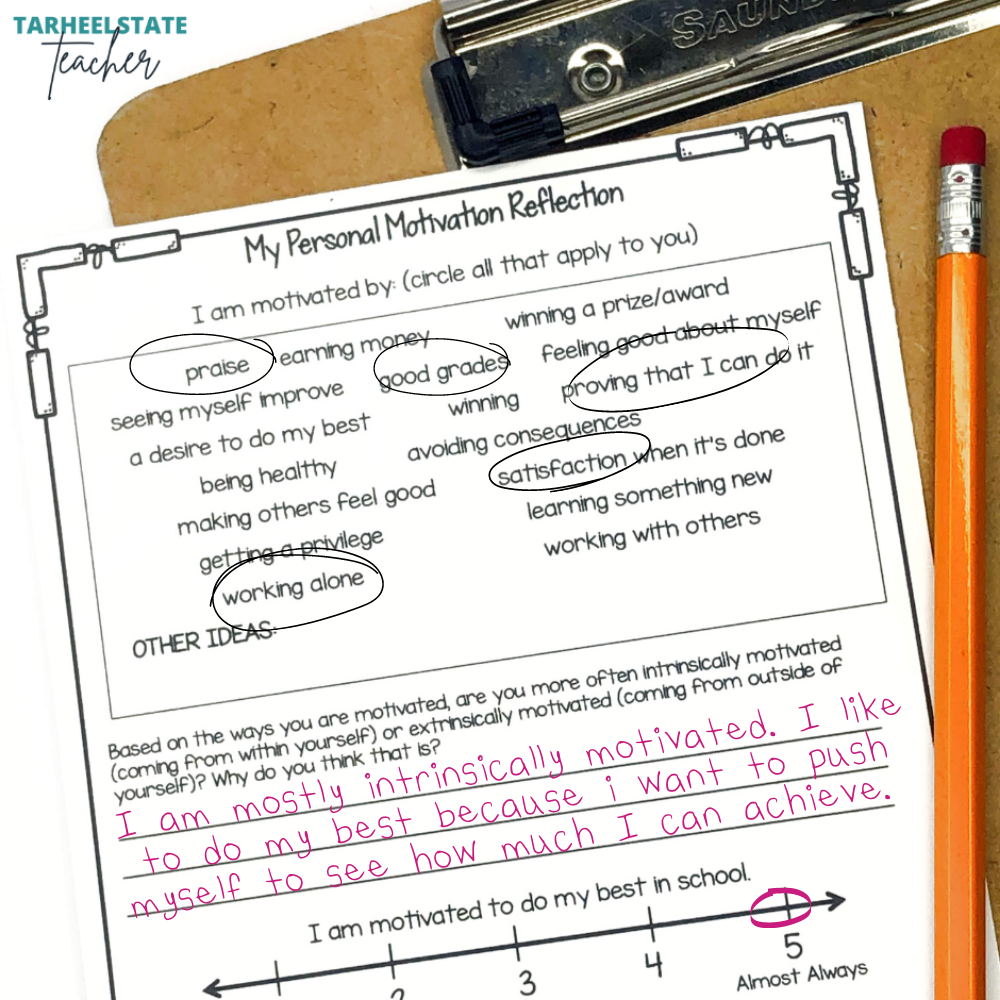 TARHEELSTATE
Teacher
My Personal Motivation Reflection
I am motivated by: (circle all that apply to you)
praise earning money winning a prize/award
seeing myself improve good grades feeling good about myself
a desire to do my best winning proving that I can do it
being healthy avoiding consequences
making others feel good satisfaction when it's done
getting a privilege learning something new
working alone working with others
OTHER IDEAS:
Based on the ways you are motivated, are you more often intrinsically motivated
(coming from within yourself) or extrinsically motivated (coming from outside of
yourself)? Why do you think that is?
I am mostly intrinsically motivated. I like
to do my best because i want to push
myself to see how much I can achieve.
I am motivated to do my best in school.
2 3 4 5
Almost Always